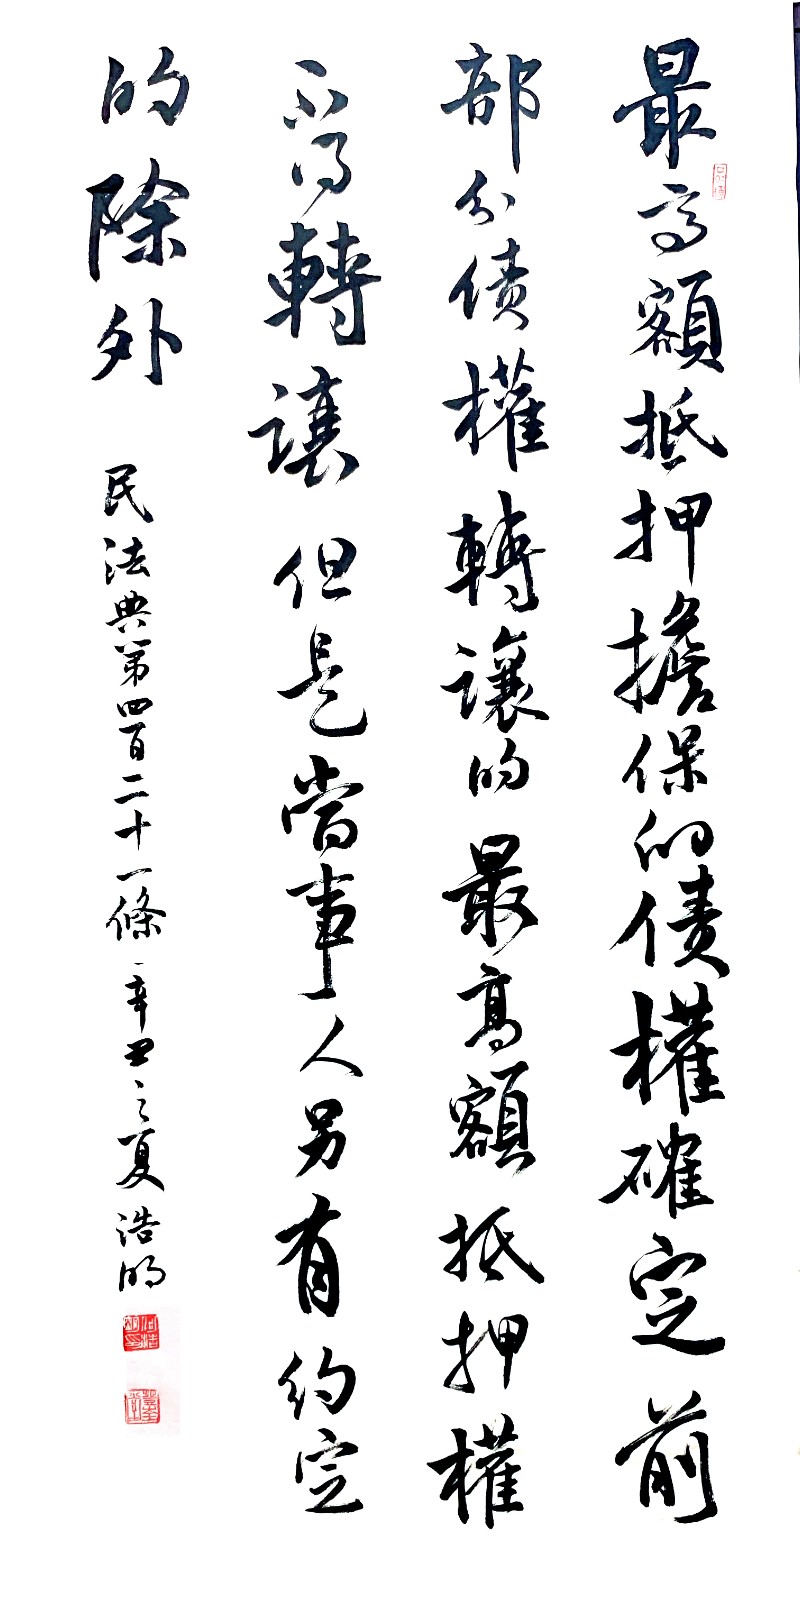 最高額抵押擔保的债權確定前
部分债權轉讓的最高額抵押權
不得轉讓但是當事人另有約定
的除外
民法典第四百二十一條辛丑之夏浩明